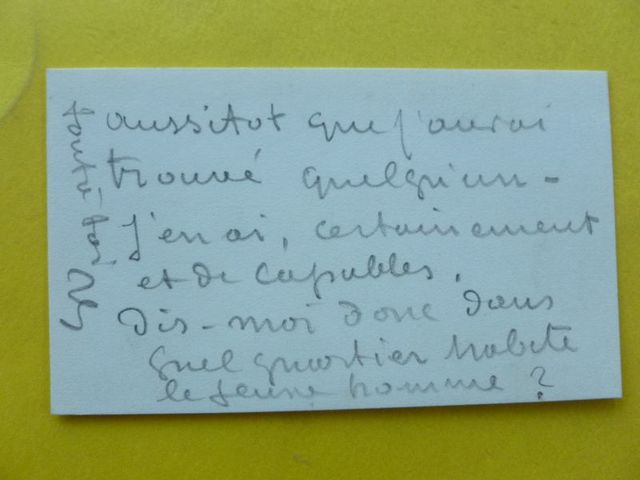 aussitot que j'aurai
trouvé quelqu'un -
J'en ai, certainement
et de capables.
Dis-moi donc dans
quel quartier habite
le jeune homme ?